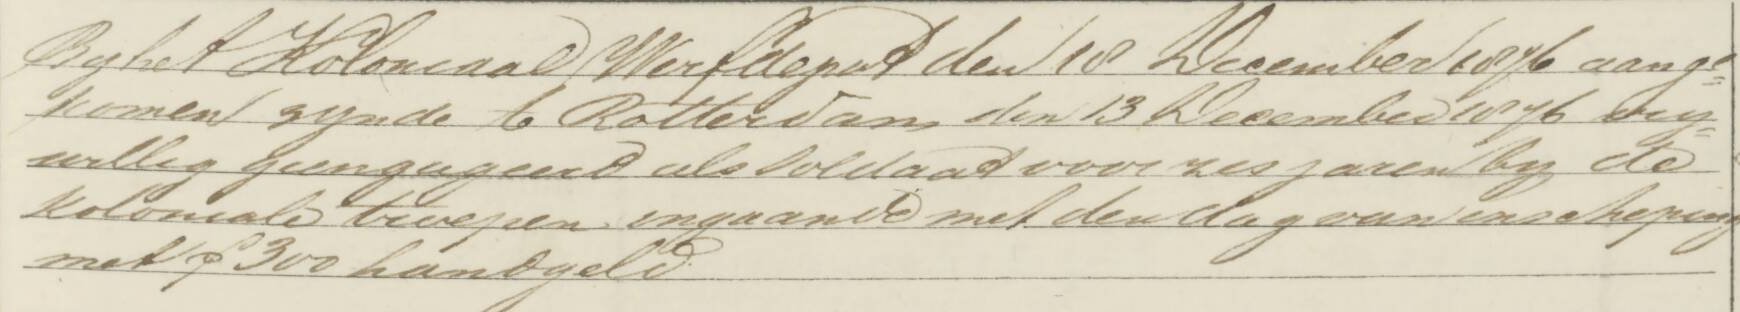 By het Koloniaal Werfdepot den 18 December 1876 aange=
komen zynde te Rotterdam den 13 December 1876 vry=
willig geengageerd als Soldaat voor zes jaren by de
koloniale troepen ingaande met den dag van inscheping
met ƒ 300 handgeld